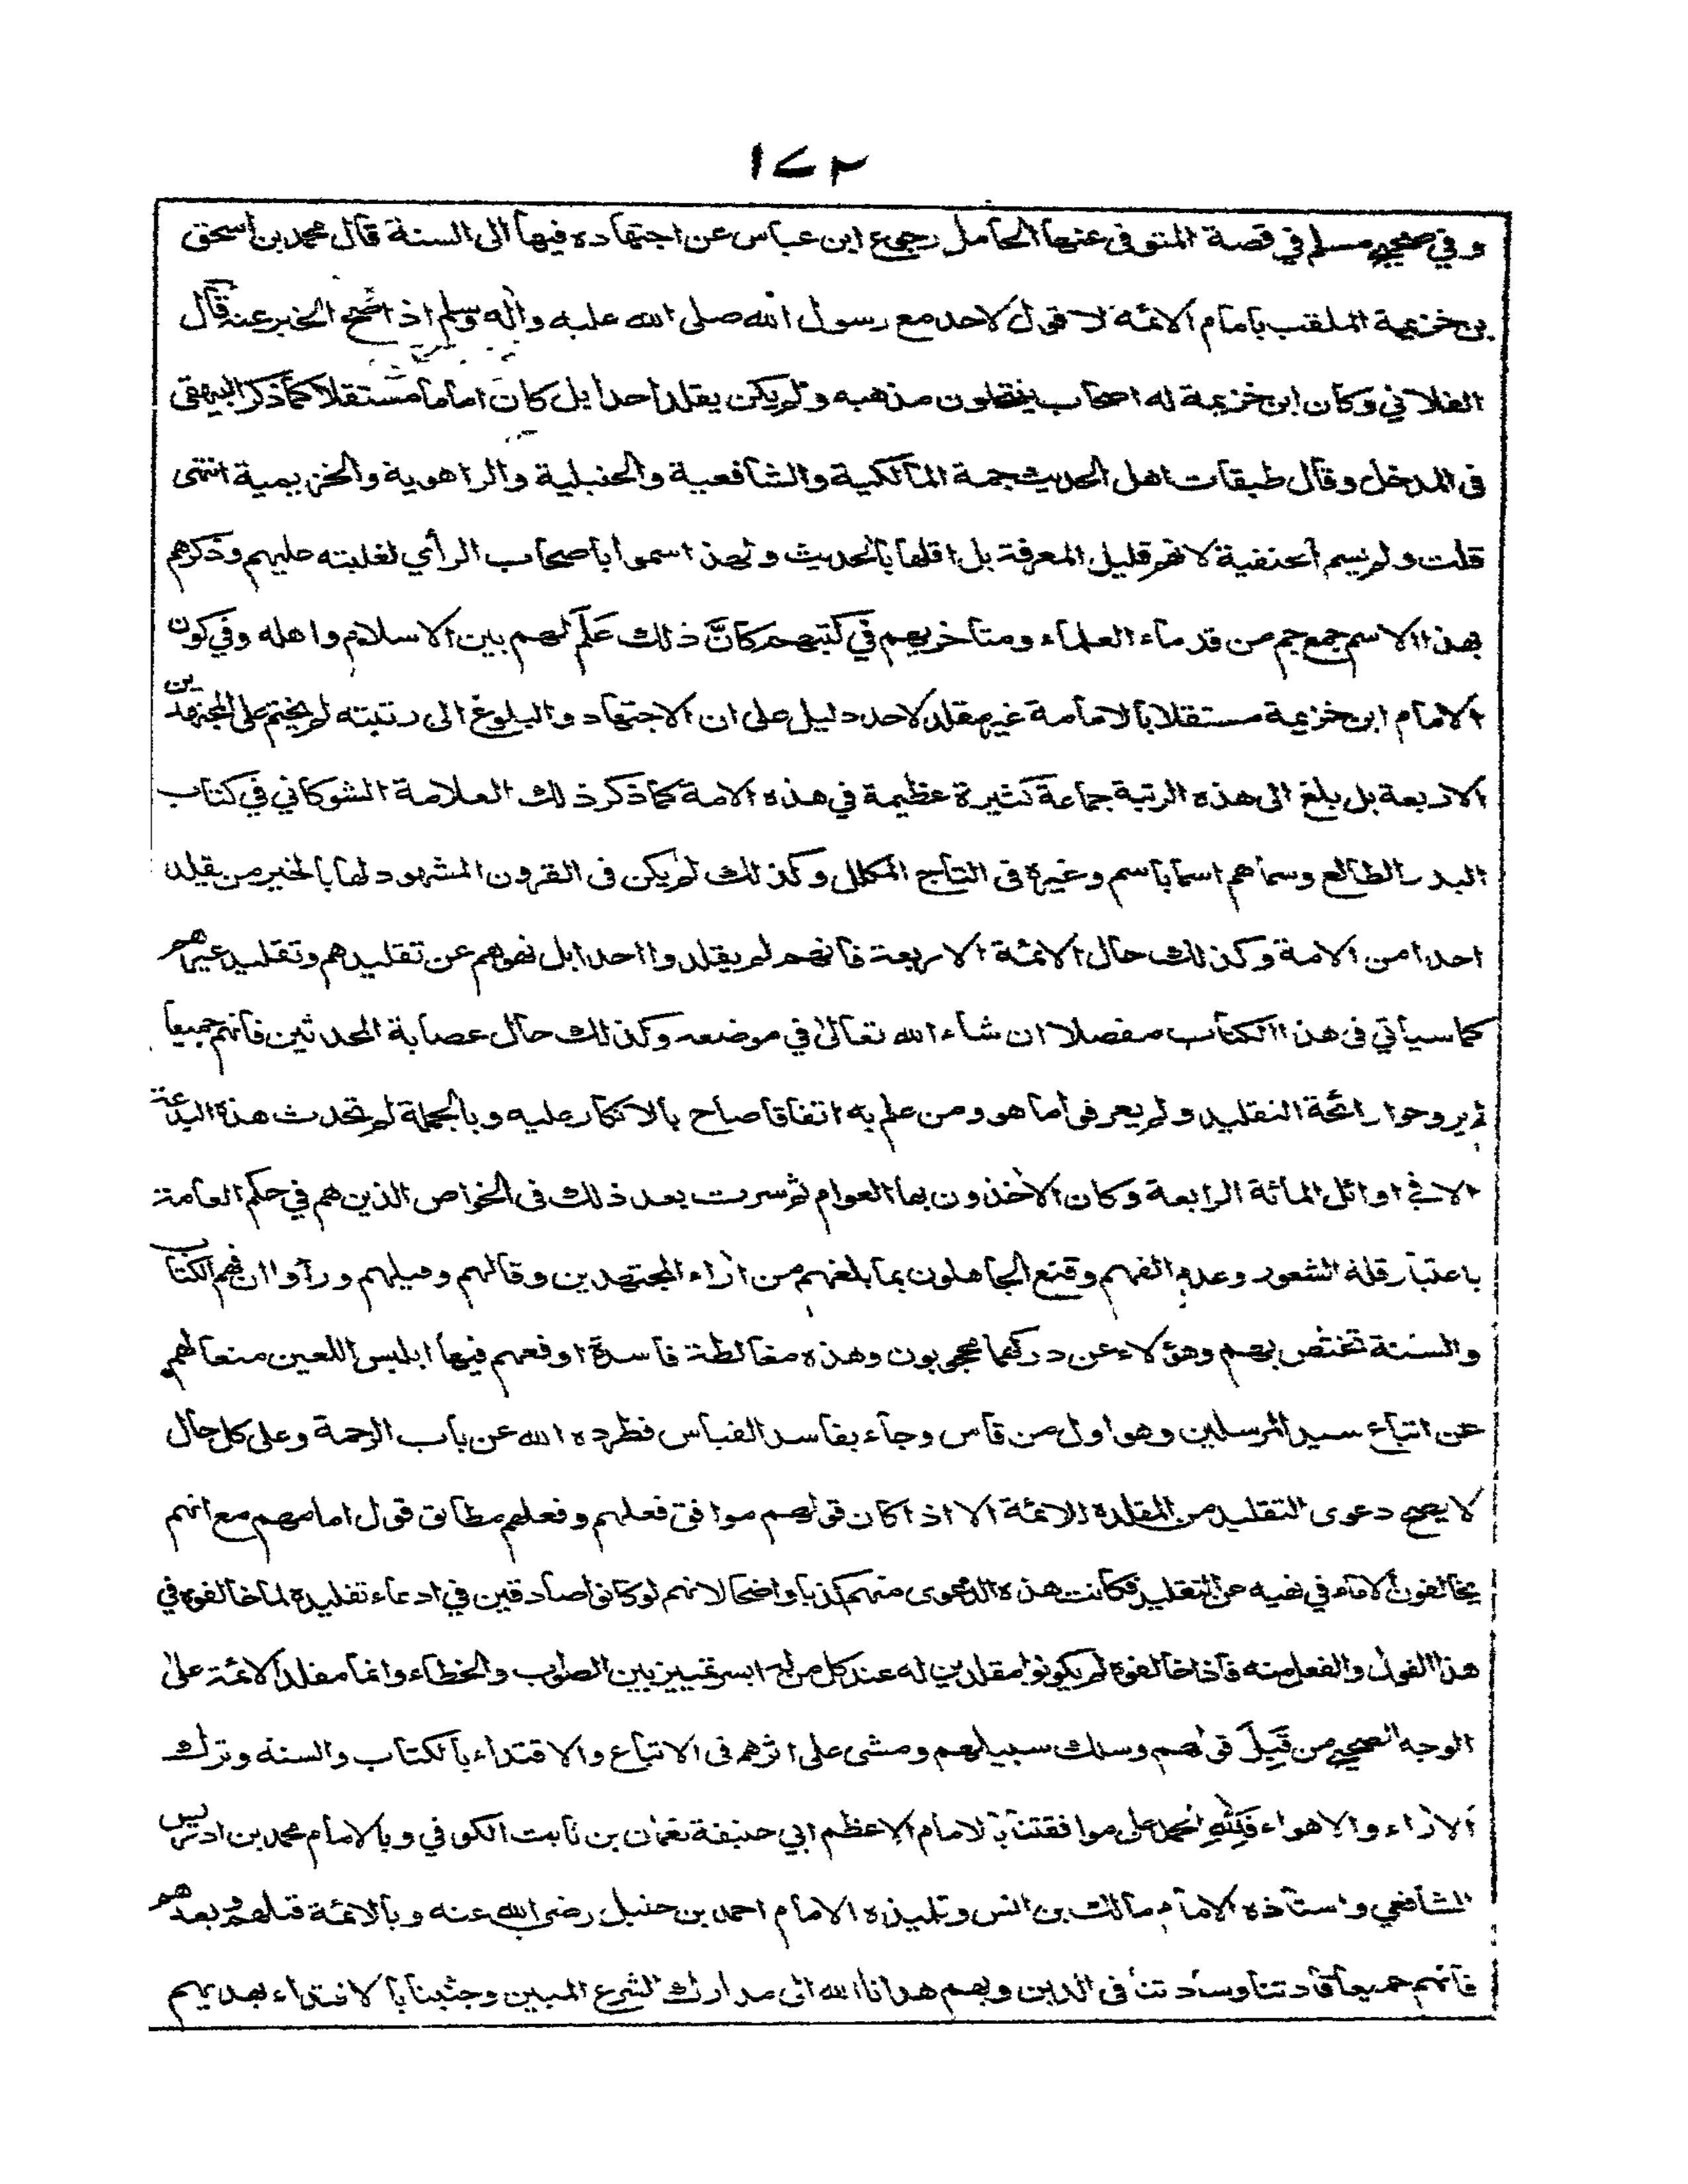 ١٧٢
وفي صحيح مسلم في قصة المتوفى عنها الحامل رجوع ابن عباس عن اجتهاده فيها الى السنة قال محمد بن اسحق
بن خزيمة الملقب بامام الائمة لا قول لاحد مع رسول الله صلى الله عليه واله وسلم اذا صح الخبر عنه قال
الفلاني وكان ابن خزيمة له اصحاب ينتحلون مذهبه ولم يكن يقلد احدا بل كان اماما مستقلا كما ذكر البيهقي
في المدخل وقال طبقات اهل الحديث خمسة المالكية والشافعية والحنبلية والراهوية والخزيمية انتهى
قلت ولم يسم الحنفية لانهم قليل المعرفة بل اقلها بالحديث ولهذا سموا باصحاب الرأي لغلبته عليهم وذكرهم
بهذا الاسم جمع جم من قدماء العلماء ومتأخريهم في كتبهم كانَّ ذلك عَلَم لهم بين الاسلام واهله وفي كون
الامام ابن خزيمة مستقلا بالامامة غير مقلد لاحد دليل على ان الاجتهاد والبلوغ الى رتبته لم يختم على المجتهدين
الاربعة بل بلغ الى هذه الرتبة جماعة كثيرة عظيمة في هذه الامة كما ذكر ذلك العلامة الشوكاني في كتاب
البدر الطالع وسماهم اسما باسم وغيره في التاج المكلل وكذلك لم يكن في القرون المشهود لها بالخير من يقلد
احدا من الامة وكذلك حال الائمة الاربعة فانهم لم يقلدوا احدا بل نهوهم عن تقليدهم وتقليد غيرهم
كما سيأتي في هذا الكتاب مفصلا ان شاء الله تعالى في موضعه وكذلك حال عصابة المحدثين فانهم جميعا
لم يروحوا رائحة التقليد ولم يعرفوا ما هو ومن علم به اتفاقا صاح بالانكار عليه وبالجملة لم تحدث هذه البدعة
الا في اوائل المائة الرابعة وكان الآخذون بها العوام ثم سرت بعد ذلك في الخواص الذين هم في حكم العامة
باعتبار قلة الشعور وعدم الفهم وقنع الجاهلون بما بلغهم من آراء المجتهدين وقالهم وقيلهم ورأوا ان فهم الكتاب
والسنة تختص بهم وهؤلاء عن دركهما محجوبون وهذه مغالطة فاسدة اوقعهم فيها ابليس اللعين منعا لهم
عن اتباع سيد المرسلين وهو اول من قاس وجاء بفاسد القياس فطرده الله عن باب الرحمة وعلى كل حال
لا يصح دعوى التقليد من المقلدة للائمة الا اذا كان قولهم موافق فعلهم وفعلهم مطابق قول امامهم مع انهم
يخالفون الامام في نهيه عن التقليد فكانت هذه الدعوى منهم كذبا واضحا لانهم لو كانوا صادقين في ادعاء تقليده لما خالفوه في
هذا القول والفعل منه فاذا خالفوه لم يكونوا مقلدين له عند كل من له ايسر تمييز بين الصواب والخطاء وانما مقلد الائمة على
الوجه الصحيح من قَبِلَ قولهم وسلك سبيلهم ومشى على اثرهم في الاتباع والاقتداء بالكتاب والسنة وترك
الآراء والاهواء فلِلّٰهِ الحمد على موافقتنا بالامام الاعظم ابي حنيفة نعمان بن ثابت الكوفي وبالامام محمد بن ادريس
الشافعي واستاذه الامام مالك بن انس وتلميذه الامام احمد بن حنبل رضي الله عنه وبالائمة قبلهم وبعدهم
فانهم جميعا قادتنا وسادتنا في الدين وبهم هدانا الله الى مدارك الشرع المبين وجئنا بالاقتداء بهديهم